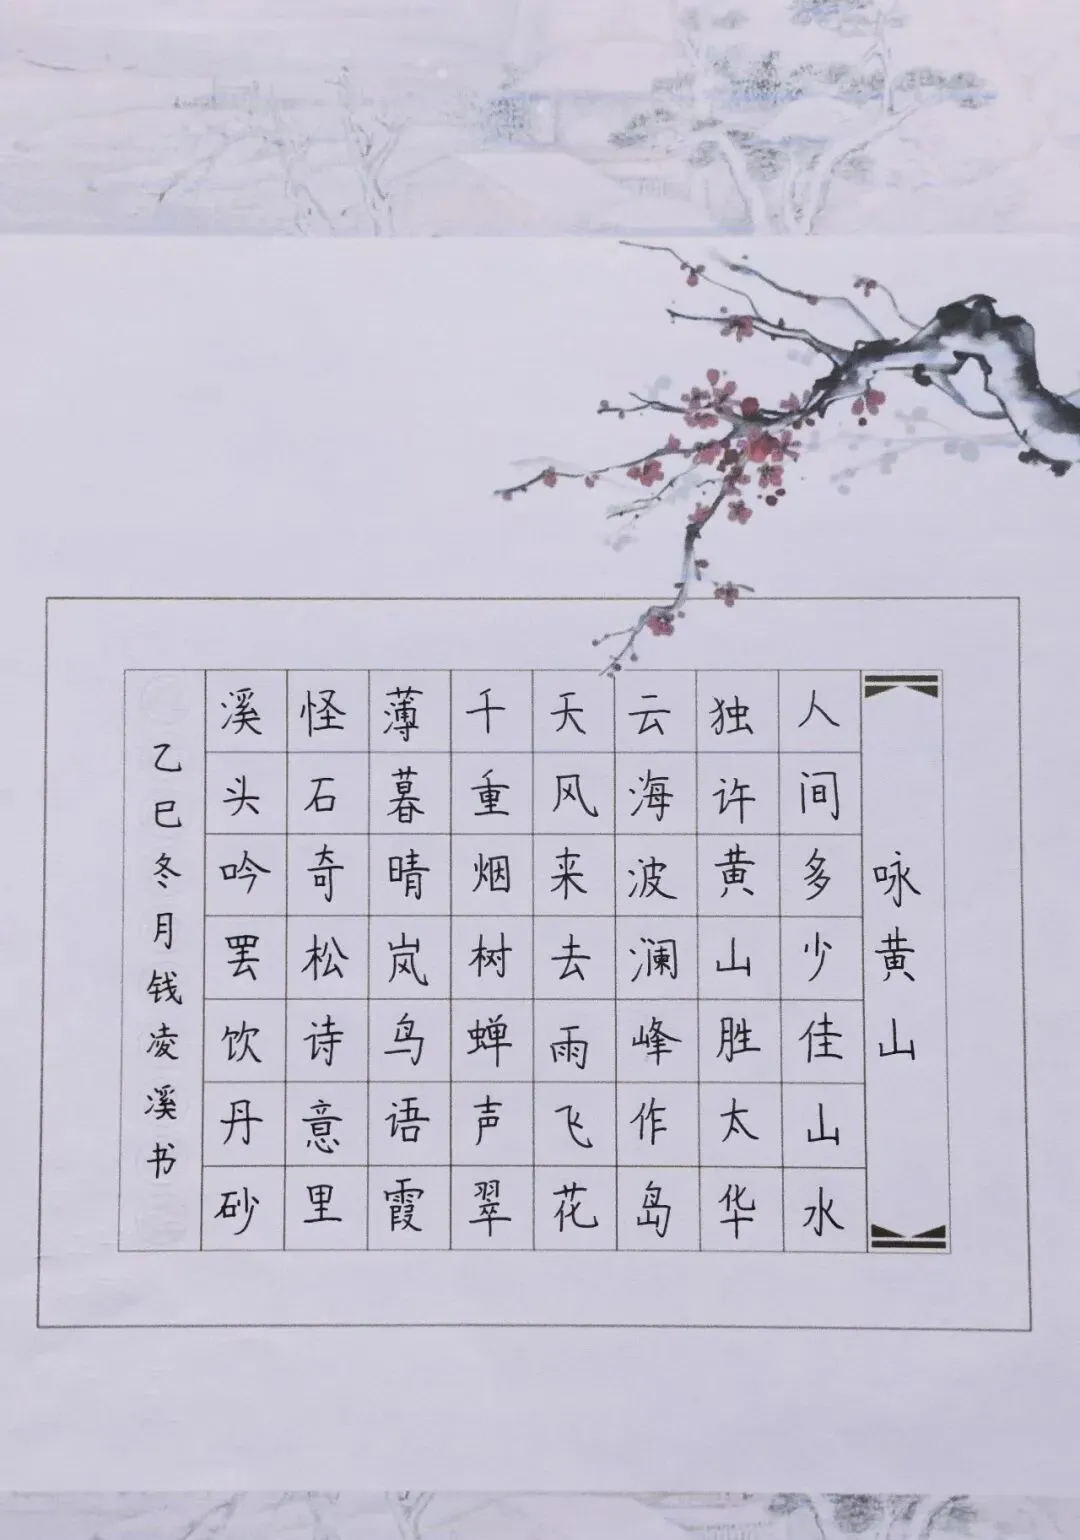 咏黄山
人间多少佳山水
独许黄山胜太华
云海波澜峰作岛
天风来去雨飞花
千重烟树蝉声翠
薄暮晴岚鸟语霞
怪石奇松诗意里
溪头吟罢饮丹砂
乙巳冬月钱凌溪书